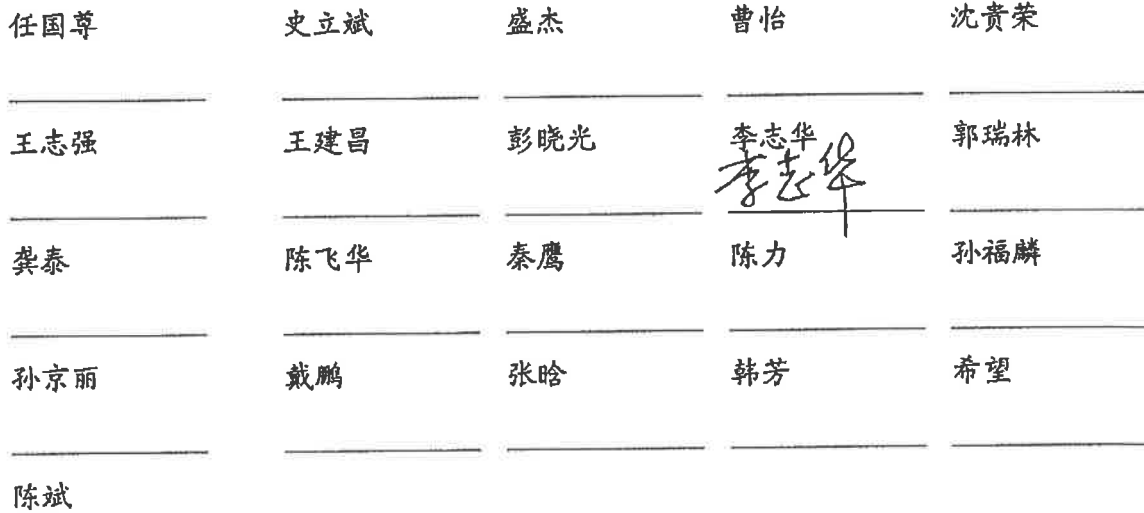 任国尊 史立斌 盛杰 曹怡 沈贵荣
王志强 王建昌 彭晓光 李志华 郭瑞林
李志华
龚泰 陈飞华 秦鹰 陈力 孙福麟
孙京丽 戴鹏 张晗 韩芳 希望
陈斌